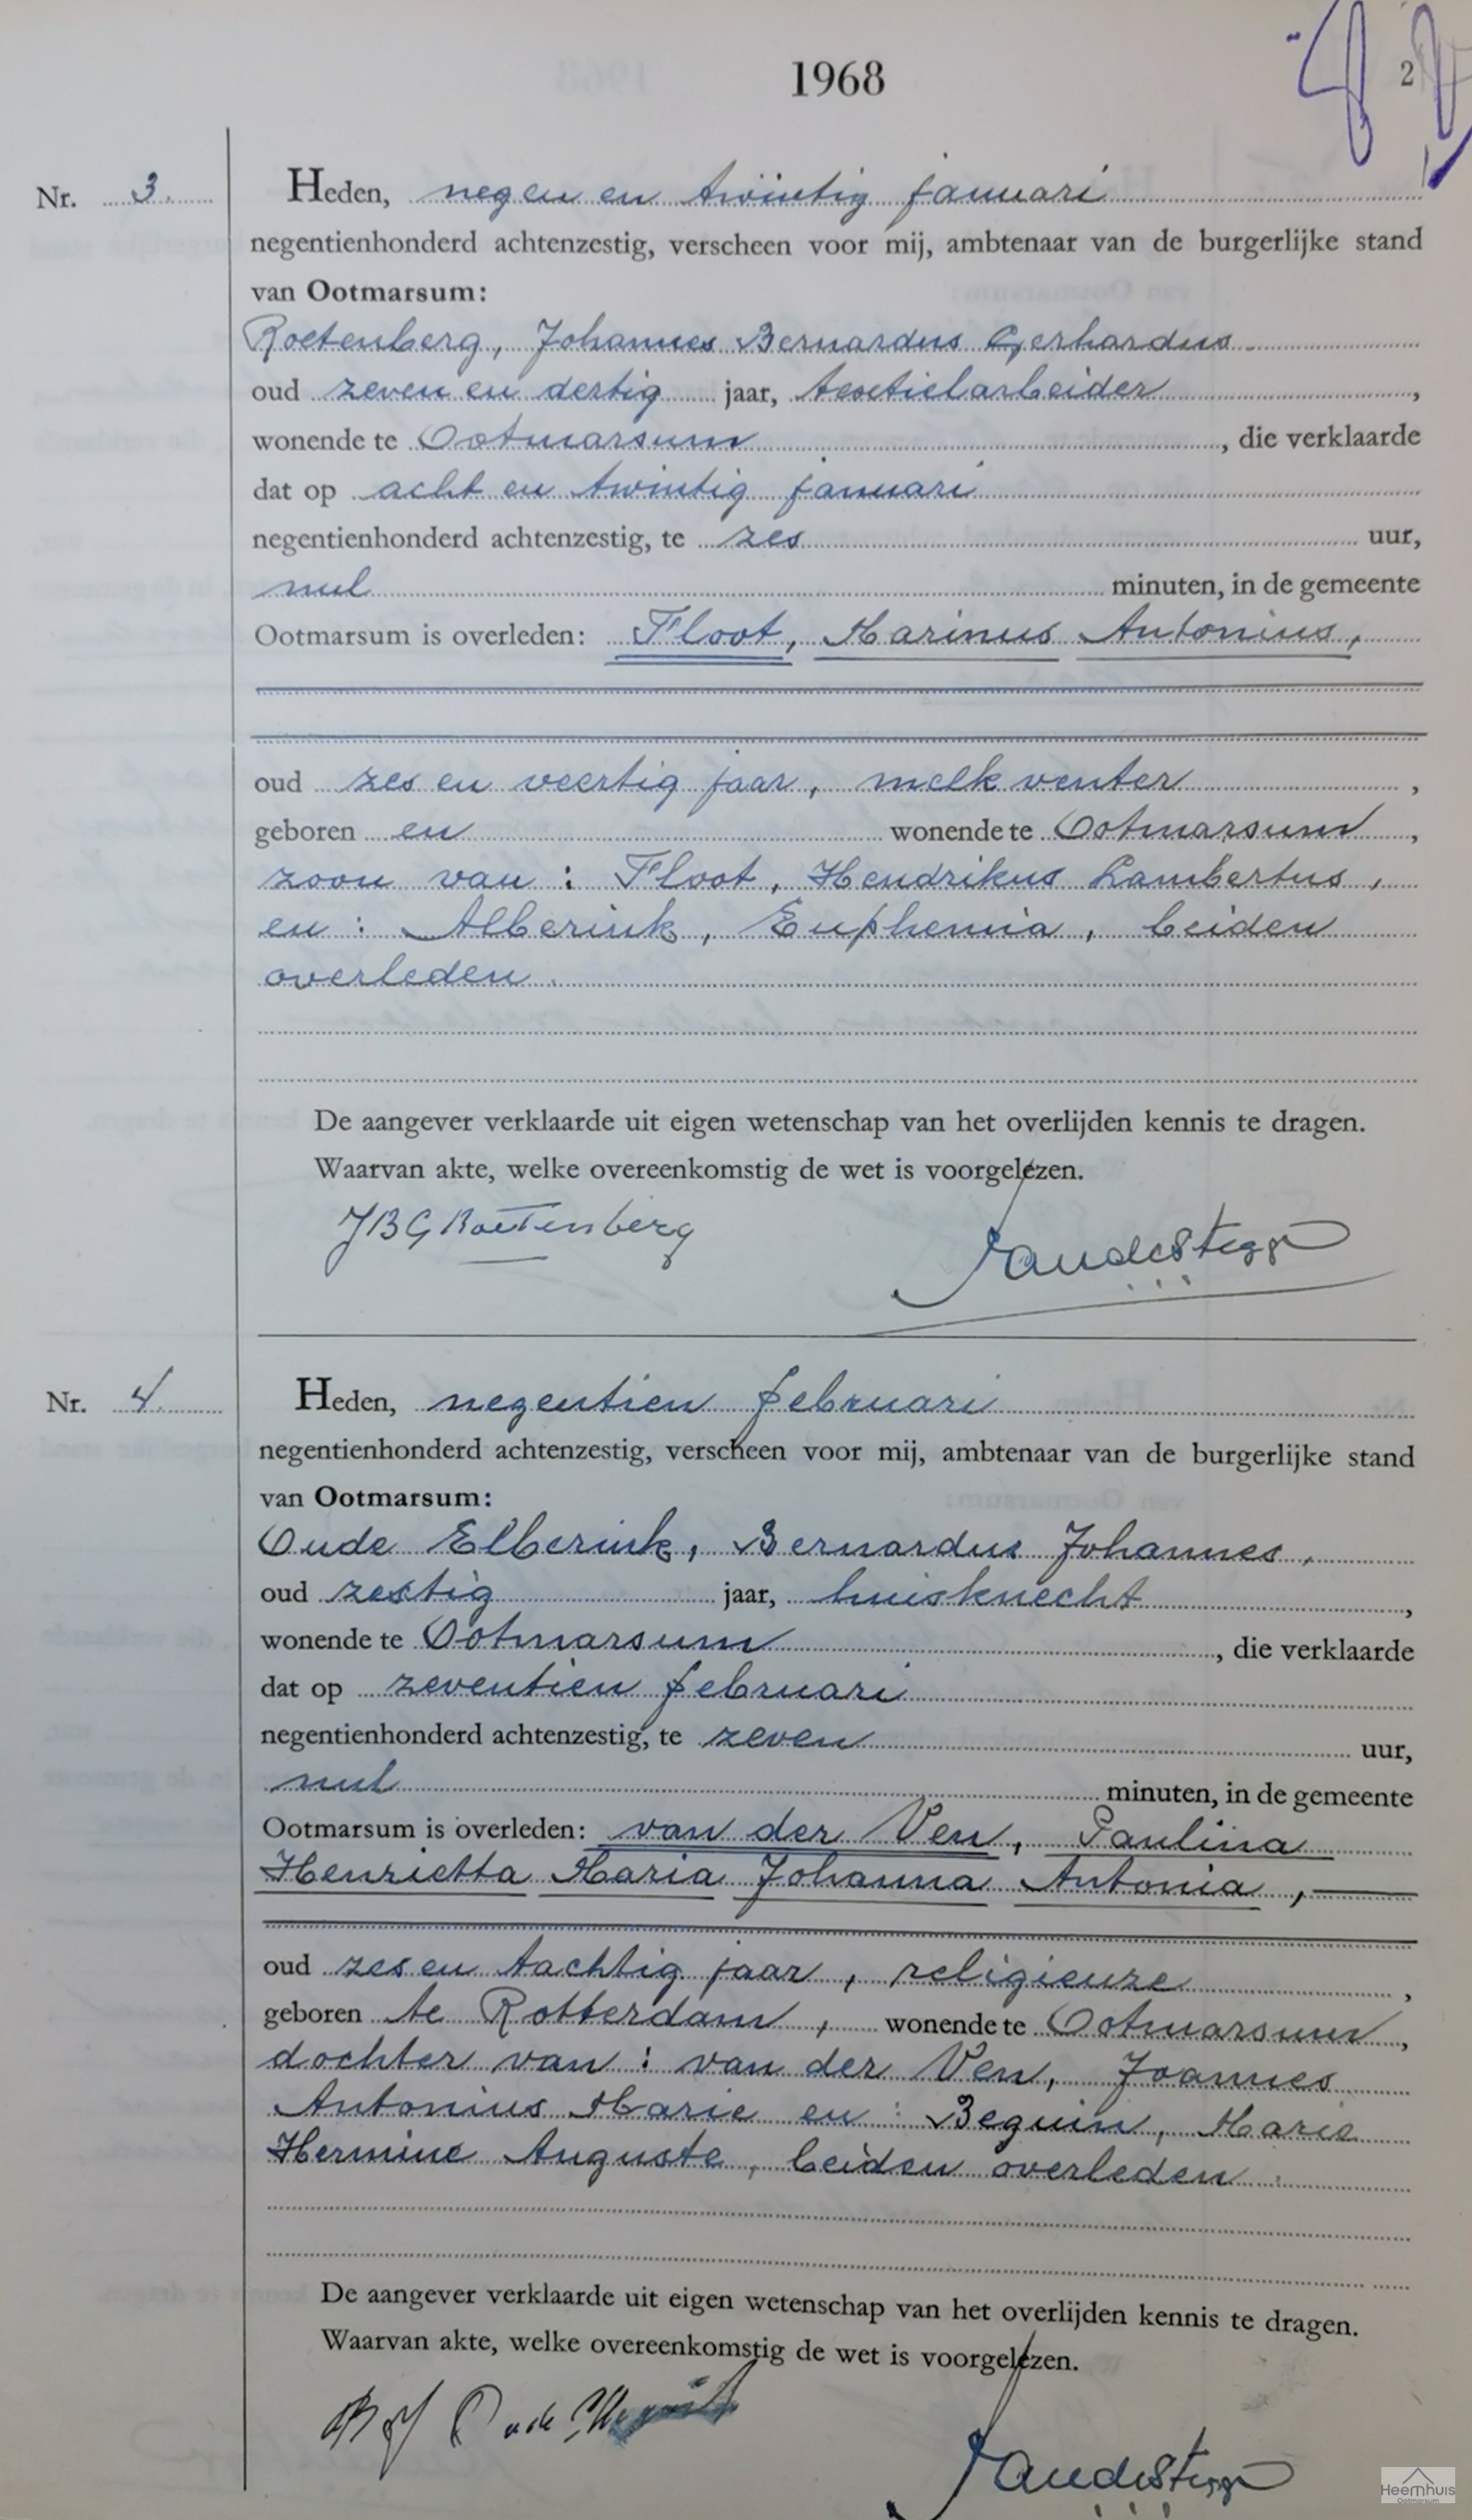 1968
2
Nr. 3.
Heden, negen en twintig januari
negentienhonderd achtenzestig, verscheen voor mij, ambtenaar van de burgerlijke stand
van Ootmarsum:
Roetenberg, Johannes Bernardus Gerhardus
oud zeven en dertig jaar, textielarbeider,
wonende te Ootmarsum, die verklaarde
dat op acht en twintig januari
negentienhonderd achtenzestig, te zes uur,
nul minuten, in de gemeente
Ootmarsum is overleden: Floot, Marinus Antonius,
oud zes en veertig jaar, melkventer,
geboren en wonende te Ootmarsum,
zoon van : Floot, Hendrikus Lambertus,
en : Alberink, Euphemia, beiden
overleden.
De aangever verklaarde uit eigen wetenschap van het overlijden kennis te dragen.
Waarvan akte, welke overeenkomstig de wet is voorgelezen.
JBG Roetenberg
Nr. 4.
Heden, negentien februari
negentienhonderd achtenzestig, verscheen voor mij, ambtenaar van de burgerlijke stand
van Ootmarsum:
Oude Elberink, Bernardus Johannes,
oud zestig jaar, huisknecht,
wonende te Ootmarsum, die verklaarde
dat op zeventien februari
negentienhonderd achtenzestig, te zeven uur,
nul minuten, in de gemeente
Ootmarsum is overleden: van der Ven, Paulina
Henrietta Maria Johanna Antonia,
oud zes en tachtig jaar, religieuze,
geboren te Rotterdam, wonende te Ootmarsum,
dochter van : van der Ven, Joannes
Antonius Marie en : Beguin, Marie
Hermine Auguste, beiden overleden.
De aangever verklaarde uit eigen wetenschap van het overlijden kennis te dragen.
Waarvan akte, welke overeenkomstig de wet is voorgelezen.
Heemhuis
Ootmarsum